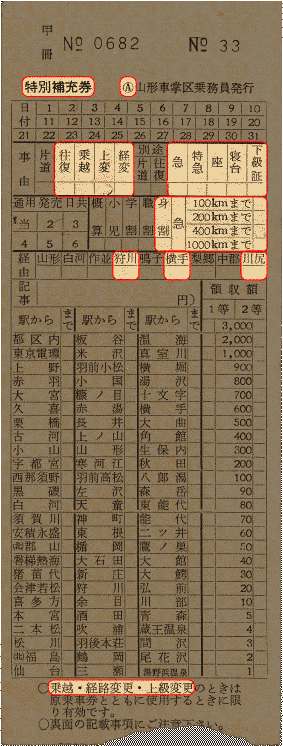 甲冊 № 0682 № 33
特別補充券 Ⓐ山形車掌区乗務員発行
日付 1 2 3 4 5 6 7 8 9 10
11 12 13 14 15 16 17 18 19 20
21 22 23 24 25 26 27 28 29 30 31
事由 片道 往復 乗越 上変 経変 別途片道 途往復 急 特急 座 寝台 下級証
通用発売日共 概算 小児 学割 職割 身割 急 100kmまで
当 2 3 200kmまで
400kmまで
4 5 6 1000kmまで
経由 山形 白河 作並 狩川 鳴子 横手 梨郷 中郡 川尻
記事 円) 領収額
駅から まで 駅から まで 駅から まで 1等 2等
3,000
都区内 板谷 温海 2,000
東京電環 米沢 真室川 1,000
上野 羽前小松 横堀 900
赤羽 小国 湯沢 800
大宮 糠ノ目 十文字 700
久喜 赤湯 横手 600
栗橋 長井 大曲 500
古河 上ノ山 角館 400
小山 山形 生保内 300
宇都宮 寒河江 秋田 200
西那須野 羽前高松 八郎潟 100
黒磯 左沢 森岳 90
白河 天童 東能代 80
須賀川 神町 能代 70
安積永盛 東根 二ツ井 60
郡山 楯岡 鷹ノ巣 50
磐梯熱海 大石田 大館 40
猪苗代 新庄 大鰐 30
会津若松 狩川 弘前 20
喜多方 余目 川部 10
本宮 酒田 青森 5
二本松 吹浦 蔵王温泉 4
松川 羽後本荘 間沢 3
福島 鶴岡 尾花沢 2
仙台 三瀬 湯野浜温泉 1
○乗越・経路変更・上級変更のときは
原乗車券とともに使用するときに限
り有効です。
○裏面の記載事項にご注意下さい。